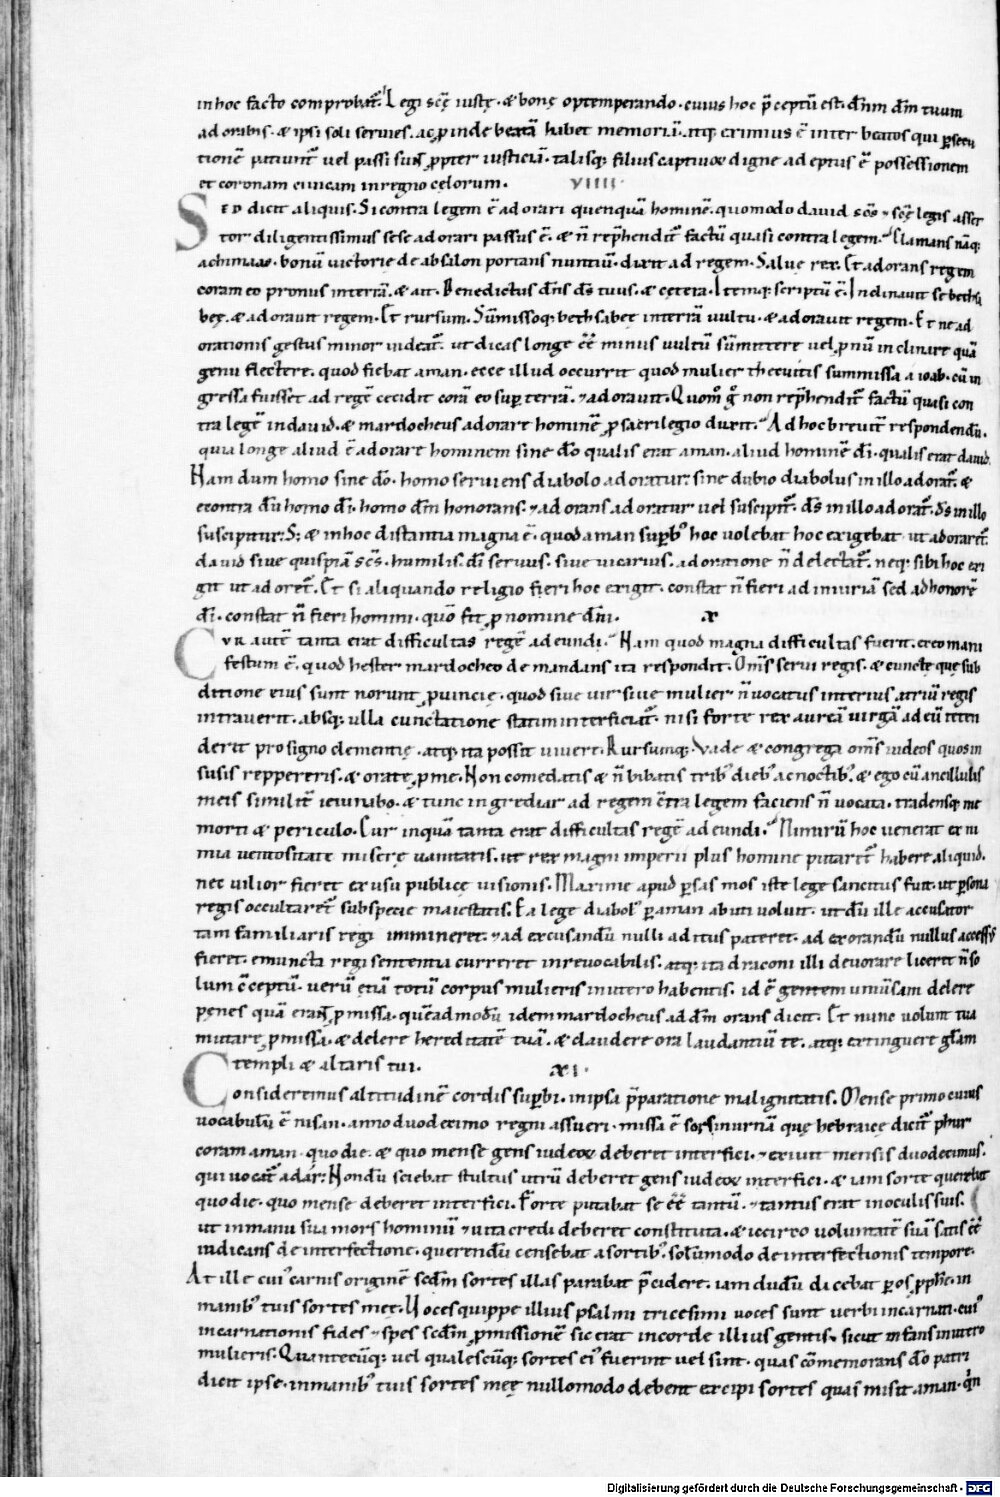 in hoc facto comprobat̄. Legi scę̄ iustę. & bonę optemperando. cuius hoc p̄ceptū est. dn̄m dm̄ tuum
adorabis. & ipsi soli seruies. ac ꝓinde beatā habet memoriā. atq; eximius ē inter beatos qui ꝑsecu
tionē patiunt̄ vel passi sunt ꝓpter iusticiā. talisq; filius captiuoꝝ digne adeptus ē possessionem
et coronam eiusdem in regno cęlorum. VIIII.
SED dicit aliquis. Si contra legem ē adorari quenquā hominē. quomodo dauid scs̄ & scę̄ legis asser
tor diligentissimus sese adorari passus ē. & n̄ rep̄hendit factū quasi contra legem. Clamans nāq;
achimaas. bonū victorie de absalon portans nuntiū. dixit ad regem. Salue rex. Et adorans regem
coram eo pronus in terrā. & ait. Benedictus dn̄s ds̄ tuus. & cętera. Itemq; scriptū ē. Inclinauit se bethsa
beę. & adorauit regem. Et rursum. Sūmissoq; bethsabeę in terrā uultu. & adorauit regem. Et ne ad
orationis gestus minor uideat̄. ut dicas longe ēē minus uultū sūmittere uel ꝓnū inclinare quā
genu flectere. quod fiebat aman. ecce illud occurrit quod mulier thecuitis summissa a ioab. cū in
gressa fuisset ad regē cecidit corā eo sup terrā. & adorauit. Quom̊ g̊ non rep̄hendit factū quasi con
tra legē in dauid. & mardocheus adorare hominē ꝓ sacrilegio duxit. Ad hoc breuit̄ respondendū.
quia longe aliud ē adorare hominem sine dō qualis erat aman. aliud hominē dī. qualis erat dauid.
Nam dum homo sine dō. homo seruiens diabolo adoratur; sine dubio diabolus in illo adorat̄. &
econtra dū homo dī. homo dm̄ honorans. & adorans adoratur uel suscipit̄. ds̄ in illo adorat̄. ds̄ in illo
suscipitur; S; & in hoc distantia magna ē. quod aman supb' hoc volebat hoc exigebat ut adoraret̄.
dauid siue quispiā scs̄. humilis. dī seruus. siue uicarius. adoratione n̄ delectat̄. neq; sibi hoc exi
git ut adoret̄. Et si aliquando religio fieri hoc exigit. constat n̄ fieri ad iniuriā sed ad honorē
dī. constat n̄ fieri homini. quod fit ꝓ nomine dn̄i. X
CVR autē tanta erat difficultas regē adeundi. Nam quod magna difficultas fuerit. ex eo mani
festum ē. quod hester mardocheo demandans ita respondit. Om̄s serui regis. & cunctę quę sub
ditione eius sunt norunt ꝓuincię. quod siue uir siue mulier n̄ uocatus interius atriū regis
intrauerit. absq; ulla cunctatione statim interficiat̄. nisi forte rex aureā virgā ad eū teten
derit pro signo clementię. atq; ita possit uiuere. Rursumq; Vade & congrega om̄s iudeos quos in
susis reppereris. & orate ꝓ me. Non comedatis & n̄ bibatis trib' dieb' ac noctib'. & ego cū ancillulis
meis similit̄ ieiunabo. & tunc ingrediar ad regem c̄tra legem faciens n̄ vocata. tradensq; me
morti & periculo. Cur inquā tanta erat difficultas regē adeundi. Nimirū hoc uenerat ex ni
mia uentositate miserę uanitatis. ut rex magni imperii plus homine putaret̄ habere aliquid.
nec uilior fieret ex usu publicę uisionis. Maxime apud ꝑsas mos iste lege sancitus fuit. ut ꝑsona
regis occultaret̄ sub specie maiestatis. Ea lege diabol' ꝑ aman abuti voluit. ut dū ille accusator
tam familiaris regi immineret. & ad excusandū nulli aditus pateret. ad exorandū nullus accessus
fieret. e cuncta regi sententia curreret inreuocabilis. atq; ita draconi illi deuorare liceret n̄ so
lum c̄ceptū. verū etiā totū corpus mulieris in utero habentis. id ē gentem uniuersam delere
penes quā erat ꝓmissa. quēadmodū idem mardocheus ad dm̄ orans dicit. Et nunc volunt tua
mutare ꝓmissa. & delere hereditatē tuā. & claudere ora laudantiū te. atq; extinguere gl̄am
templi & altaris tui. XI.
Consideremus altitudinē cordis supbi. in ipsa p̄paratione malignitatis. Mense primo cuius
vocabulū ē nisan. anno duodecimo regni assueri. missa ē sors in urnā quę hebraice dicit̄ phur
coram aman. quo die. & quo mense gens iudeoꝝ deberet interfici. & exiuit mensis duodecimus.
qui uocat̄ adar; Nondū sciebat stultus utrū deberet gens iudeoꝝ interfici. & iam sorte querebat
quo die. quo mense deberet interfici. Forte putabat se ēē tantū. & tantus erat in oculis suis.
ut in manu sua mors hominū & uita credi deberet constituta. & iccirco voluntatē suā satis ēē
iudicans de interfectione. querendū censebat a sortib'. solūmodo de interfectionis tempore.
At ille cui' carnis originē scdm̄ sortes illas parabat p̄cidere. iam dudū dicebat ꝑ os ꝓphę. in
manib' tuis sortes meę. Hoces quippe illius psalmi tricesimi voces sunt uerbi incarnati. cui'
incarnationis fides & spes scdm̄ ꝓmissionē sic erat in corde illius gentis. sicut infans in utero
mulieris. Quantecūq; uel qualescūq; sortes ei' fuerint uel sint. quas cōmemorans dō patri
dicit ipse. in manib' tuis sortes meę nullomodo debent excipi sortes quas misit aman. qn̄
Digitalisierung gefördert durch die Deutsche Forschungsgemeinschaft - DFG